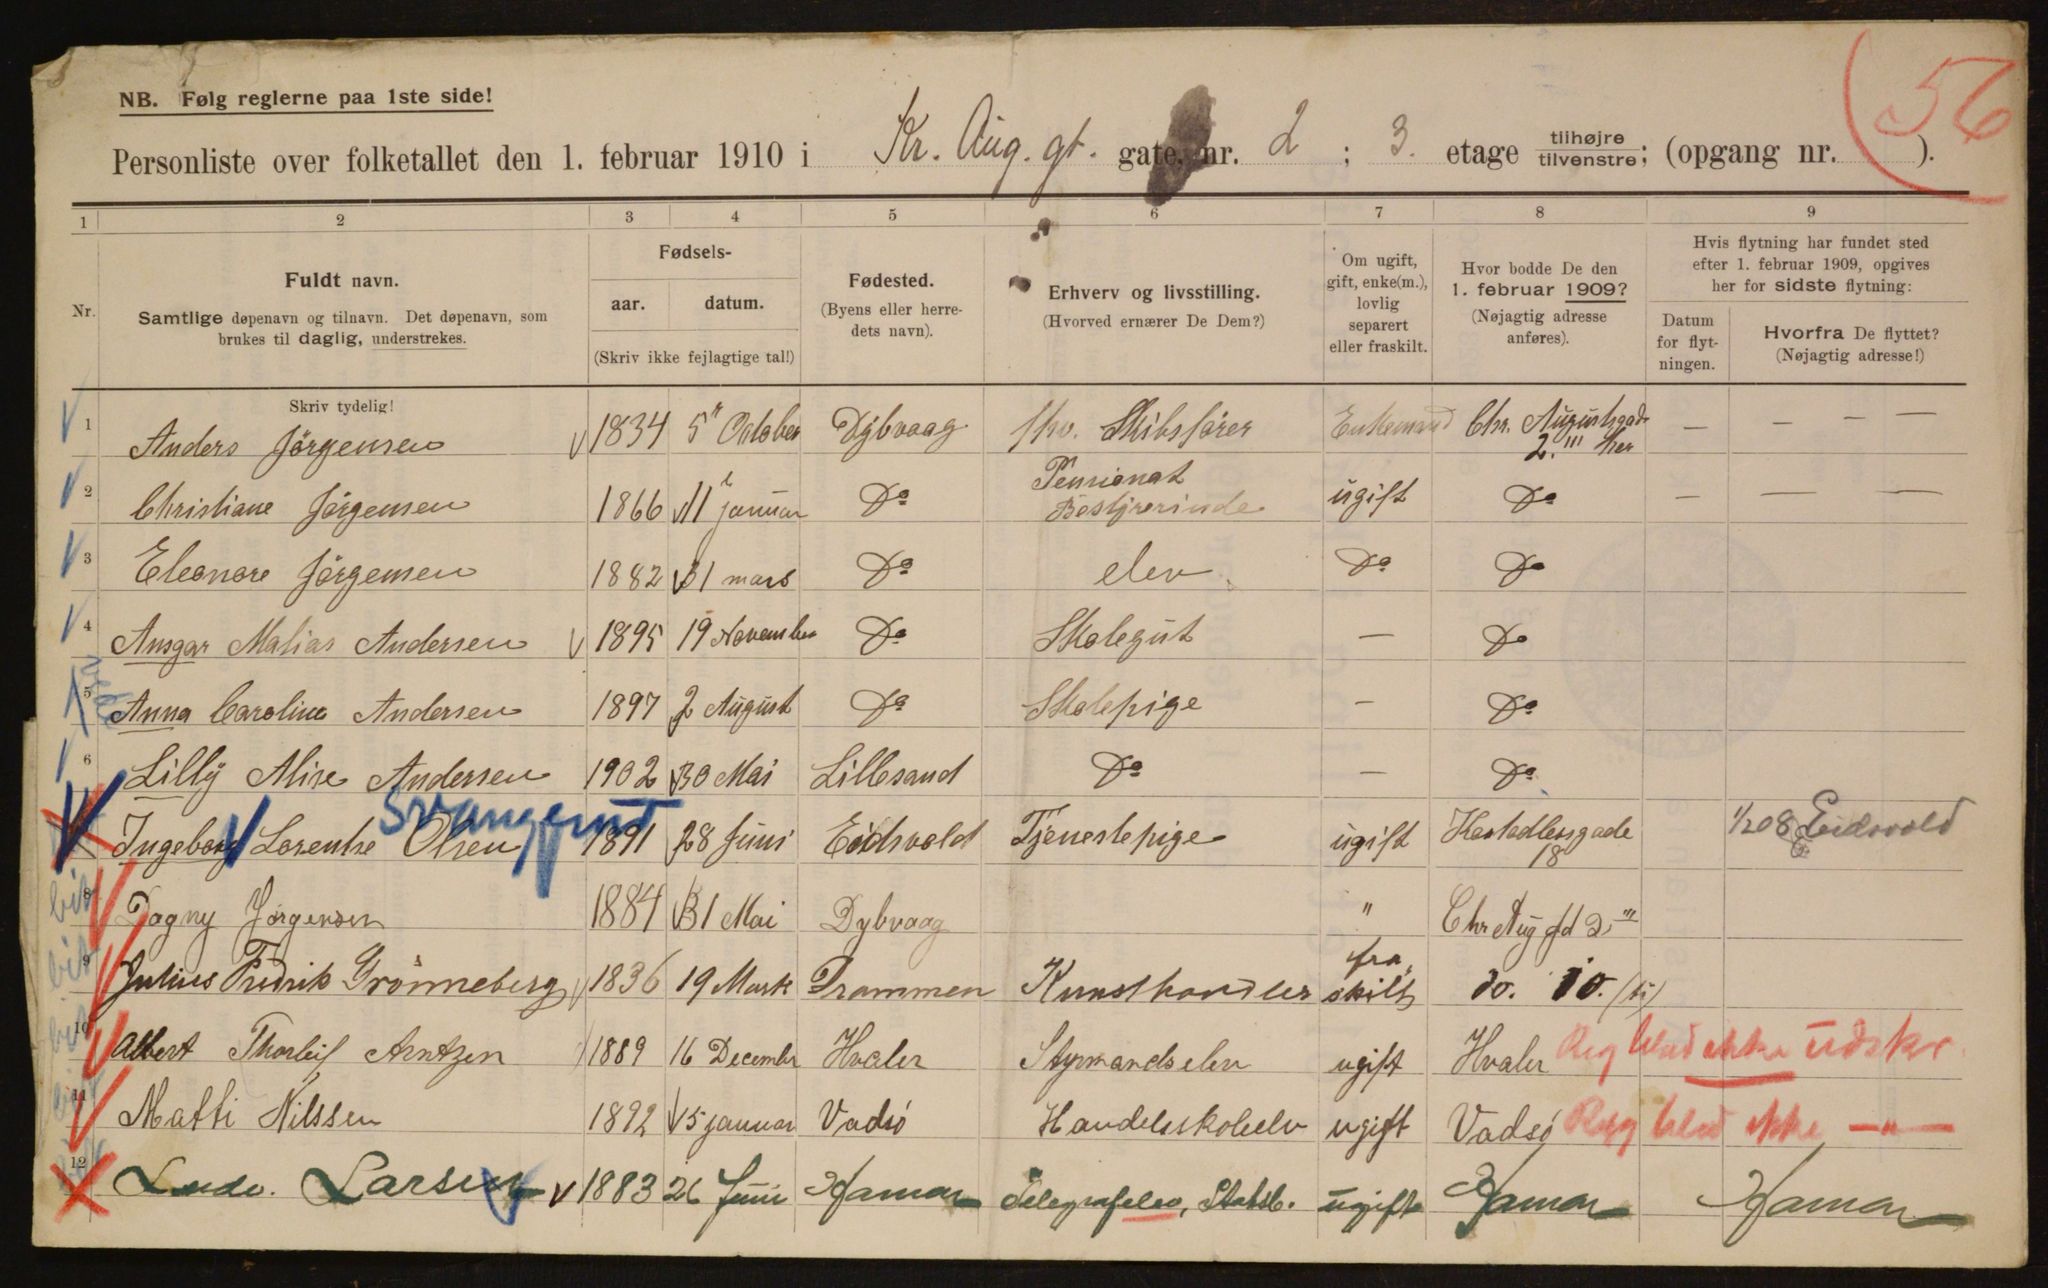 NB. Følg reglerne paa 1ste side!
56
Personliste over folketallet den 1. februar 1910 i Kr. Aug. gt. gate, nr. 2 ; 3. etage tilhøjre / tilvenstre; (opgang nr. ).
1 2 3 4 5 6 7 8 9
Nr.
Fuldt navn.
Samtlige døpenavn og tilnavn. Det døpenavn, som
brukes til daglig, understrekes.
Fødsels-
aar. datum.
(Skriv ikke fejlagtige tal!)
Fødested.
(Byens eller herre-
dets navn).
Erhverv og livsstilling.
(Hvorved ernærer De Dem?)
Om ugift,
gift, enke(m.),
lovlig
separert
eller fraskilt.
Hvor bodde De den
1. februar 1909?
(Nøjagtig adresse
anføres).
Hvis flytning har fundet sted
efter 1. februar 1909, opgives
her for sidste flytning:
Datum
for flyt-
ningen.
Hvorfra De flyttet?
(Nøjagtig adresse!)
Skriv tydelig!
1 Anders Jörgensen 1834 5 October Dybvaag fhv. Skibsfører Enkemand Chr. Augustsgade 2 III her — — — —
2 Christiane Jörgensen 1866 11 januar Do Pensionat Bestyrerinde ugift Do — — —
3 Eleonore Jörgensen 1882 31 mars Do elev Do Do
4 Ansgar Matias Andersen 1895 19 November Do Skolegut — Do
5 Anna Caroline Andersen 1897 2 August Do Skolepige — Do
6 Lilly Alise Andersen 1902 30 Mai Lillesand Do — Do
Ingeborg Lorentse Olsen 1891 28 Juni Eidsvold Tjenestepige ugift 18 1/2 08 Eidsvold
8 Dagny Jørgensen 1884 31 Mai Dybvaag " Chr Aug gd 2 III
9 Julius Fredrik Grönneberg 1836 19 Mark Drammen Kunsthandler fraskilt do. 10. (ti)
10 Albert Thorleif Arntzen 1889 16 December Hvaler Styrmandselev ugift Hvaler Reg blad ikke udskr.
11 Matti Nilssen 1892 15 januar Vadsö Handelsskoleelv ugift Vadsö Reg blad ikke —„—
12 Ludv. Larsen 1883 26 Juni Hamar Telegrafelev, Statsb. ugift Hamar Hamar